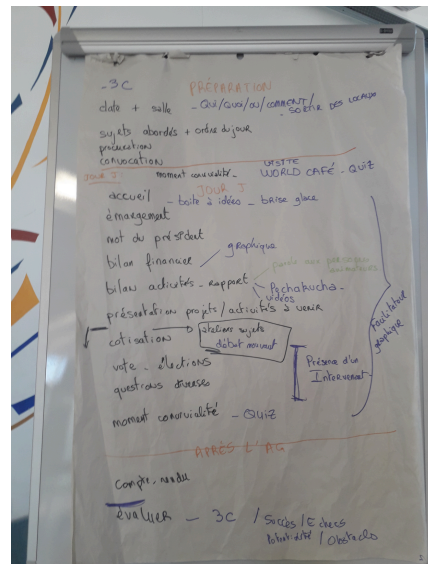 - 3C PRÉPARATION
date + salle - QUI/QUOI/OÙ/COMMENT/
- SORTIR DES LOCAUX
sujets abordés + ordre du jour
procuration
convocation
VISITE
JOUR J: moment convivialité - WORLD CAFÉ - QUIZ
JOUR J
accueil - boite à idées - brise glace
émargement
mot du président
graphique
bilan financier
parole aux personnes
bilan activités - rapport
Pechakucha -
vidéos
présentation projets/activités à venir
ateliers sujets
cotisation
débat mouvant
vote - élections
questions diverses
Présence d'un
Intervenant
Facilitateur
graphique
moment convivialité - QUIZ
APRÈS L'AG
Compte-rendu
évaluer - 3C / Succès / Echecs
Potentialité / Obstacles